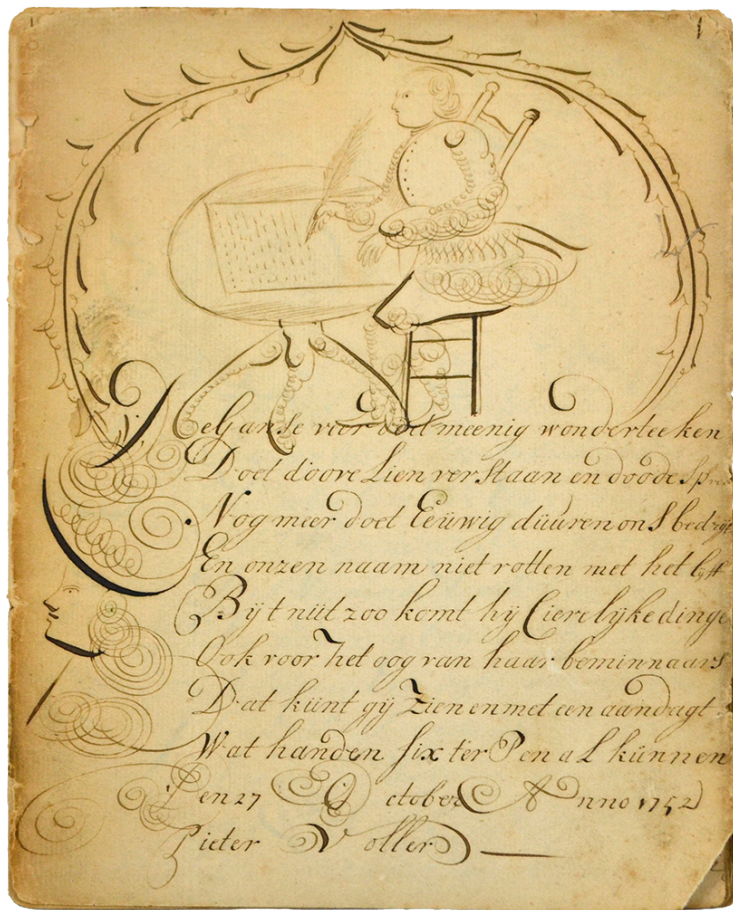 1
De Ganse voor doet meenig wonderteeken
Doet doove Lien verstaan en doode
Nog meer doet Eeüwig düüren ons
En onzen naam niet rotten met het
Bij t nüt zoo komt hij Cierelijke dinge
Ook voor het oog van haar beminnaars
Dat künt gij Zien en met een aandagt
Wat handen fix ter Pen al künnen
Den 27 October Anno 1752
Pieter Voller